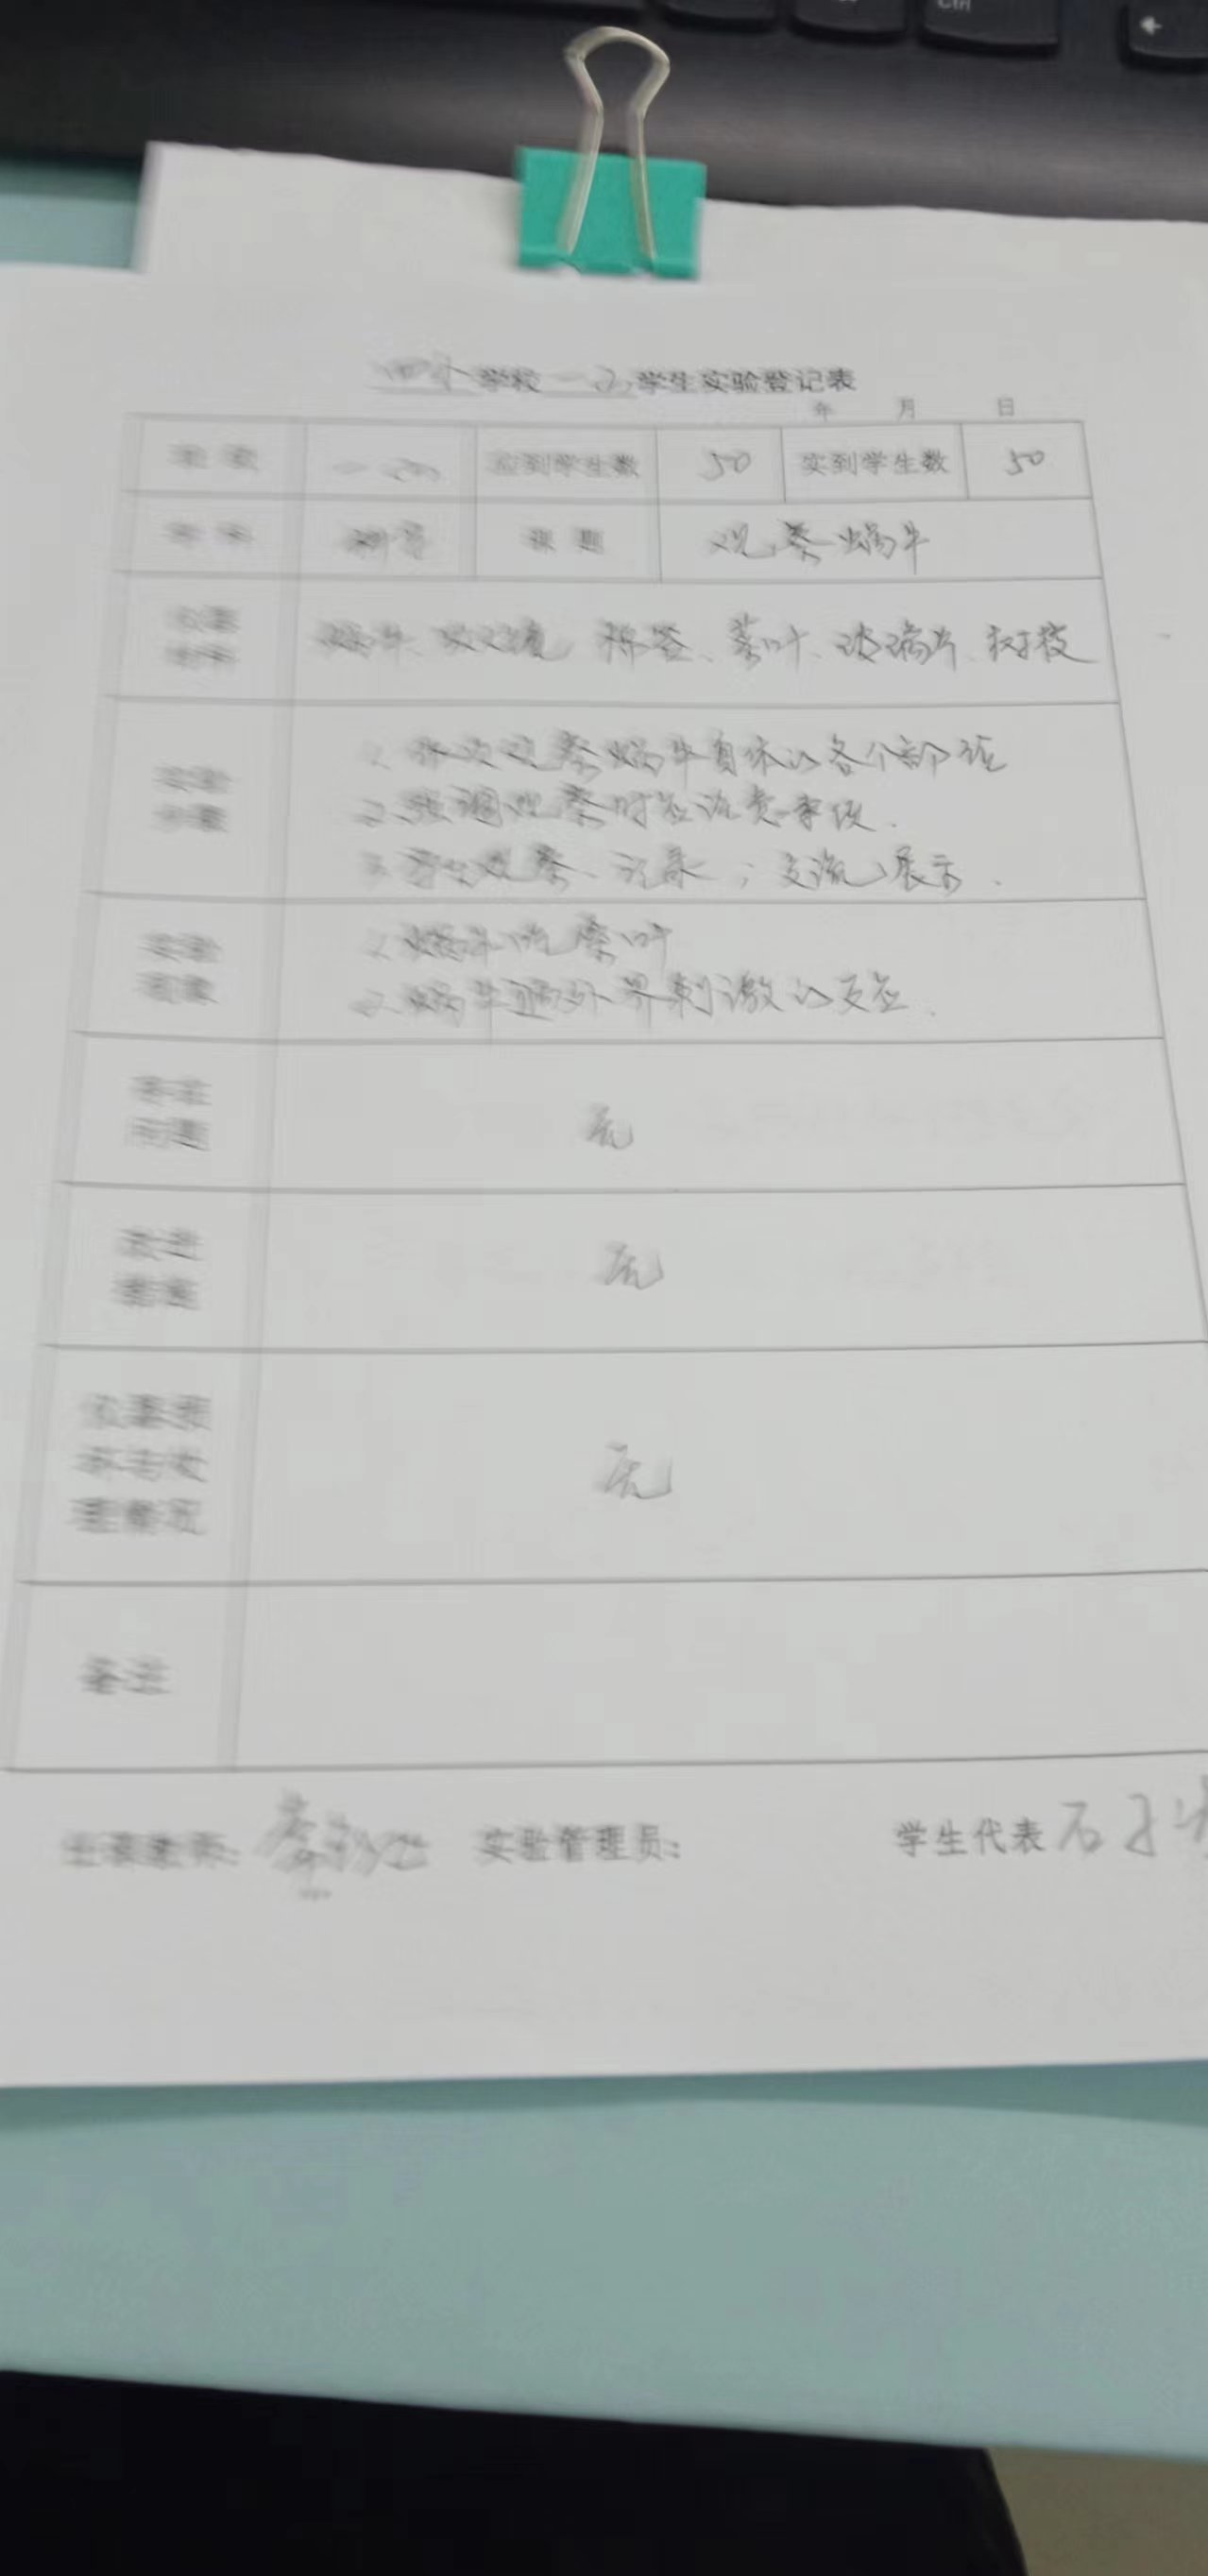 Ctrl
学校 学生实验登记表
年 月 日
班级 应到学生数 50 实到学生数 50
科学 课题 观察蜗牛
仪器
蜗牛、放大镜、标签、菜叶、玻璃片、树枝
实验
步骤
1. 依次观察蜗牛身体的各个部位
2. 强调观察时应注意事项.
3. 学生观察、记录；交流、展示.
实验
现象
1. 蜗牛吃菜叶
2. 蜗牛遇外界刺激的反应.
存在
问题
无
改进
无
仪器损
坏与处
理情况
无
备注
任课教师: 实验管理员: 学生代表 石子